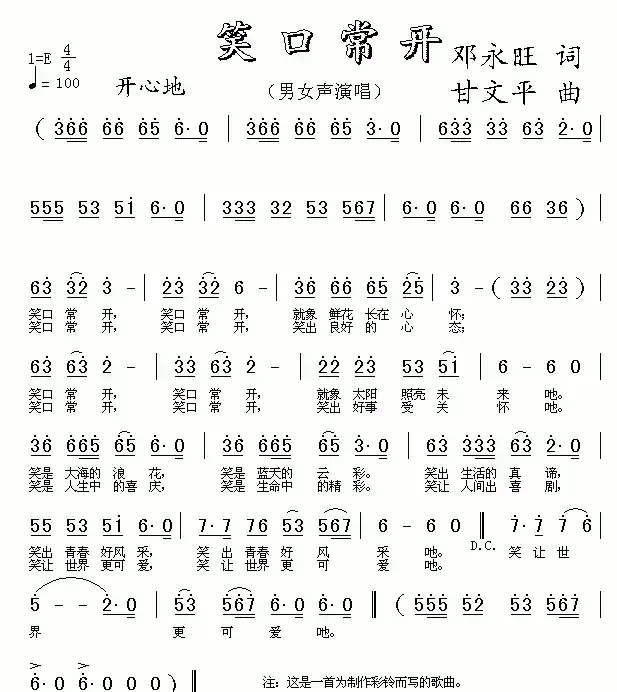 笑口常开
1=E 4/4
♩= 100
开心地
（男女声演唱）
邓永旺 词
甘文平 曲
( 3 6 6 6 6 6 5 6· 0 | 3 6 6 6 6 6 5 3· 0 | 6 3 3 3 3 6 3 2· 0 |
5 5 5 5 3 5 1 6· 0 | 3 3 3 3 2 5 3 5 6 7 | 6· 0 6· 0 6 6 3 6 ) |
6 3 3 2 3 - | 2 3 3 2 6 - | 3 6 6 6 6 5 2 5 | 3 - ( 3 3 2 3 ) |
笑口 常 开， 笑口 常 开， 就象 鲜花 长在 心 怀；
笑口 常 开， 笑口 常 开， 笑出 良好 的 心 态；
6 3 6 3 2 - | 3 3 6 3 2 - | 2 2 2 3 5 3 5 1 | 6 - 6 0 |
笑口 常 开， 笑口 常 开， 就象 太阳 照亮 未 来 吔。
笑口 常 开， 笑口 常 开， 笑出 好事 爱 关 怀 吔。
3 6 6 6 5 6 5 6· 0 | 3 6 6 6 5 6 5 3· 0 | 6 3 3 3 3 6 3 2· 0 |
笑是 大海的 浪 花， 笑是 蓝天的 云 彩。 笑出 生活的 真 谛，
笑是 人生中 的喜 庆， 笑是 生命中 的精 彩。 笑让 人间出 喜 剧，
5 5 5 3 5 1 6· 0 | 7· 7 7 6 5 3 5 6 7 | 6 - 6 0 ‖ 7· 7 7 6 |
笑出 青春 好风 采， 笑 出 青春 好 风 采 吔。 D.C. 笑 让 世
笑让 世界 更可 爱， 笑 让 世界 更 可 爱 吔。
5 - - 2· 0 | 5 3 5 6 7 6· 0 6· 0 ‖ ( 5 5 5 5 2 5 3 5 6 7 |
界 更 可 爱 吔。
6· 0 6· 0 6· 0 0 ) ‖ 注：这是一首为制作彩铃而写的歌曲。